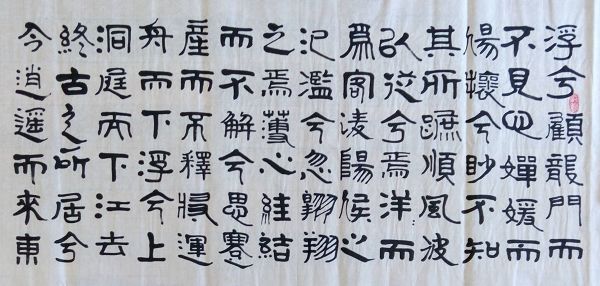 浮兮顧龍門而
不見心嬋媛而
傷懷兮眇不知
其所蹠順風波
以從兮焉洋而
爲客淩陽侯之
氾濫兮忽翱翔
之焉薄心絓結
而不解兮思蹇
產而不釋將運
舟而下浮兮上
洞庭而下江去
終古之所居兮
今逍遙而來東